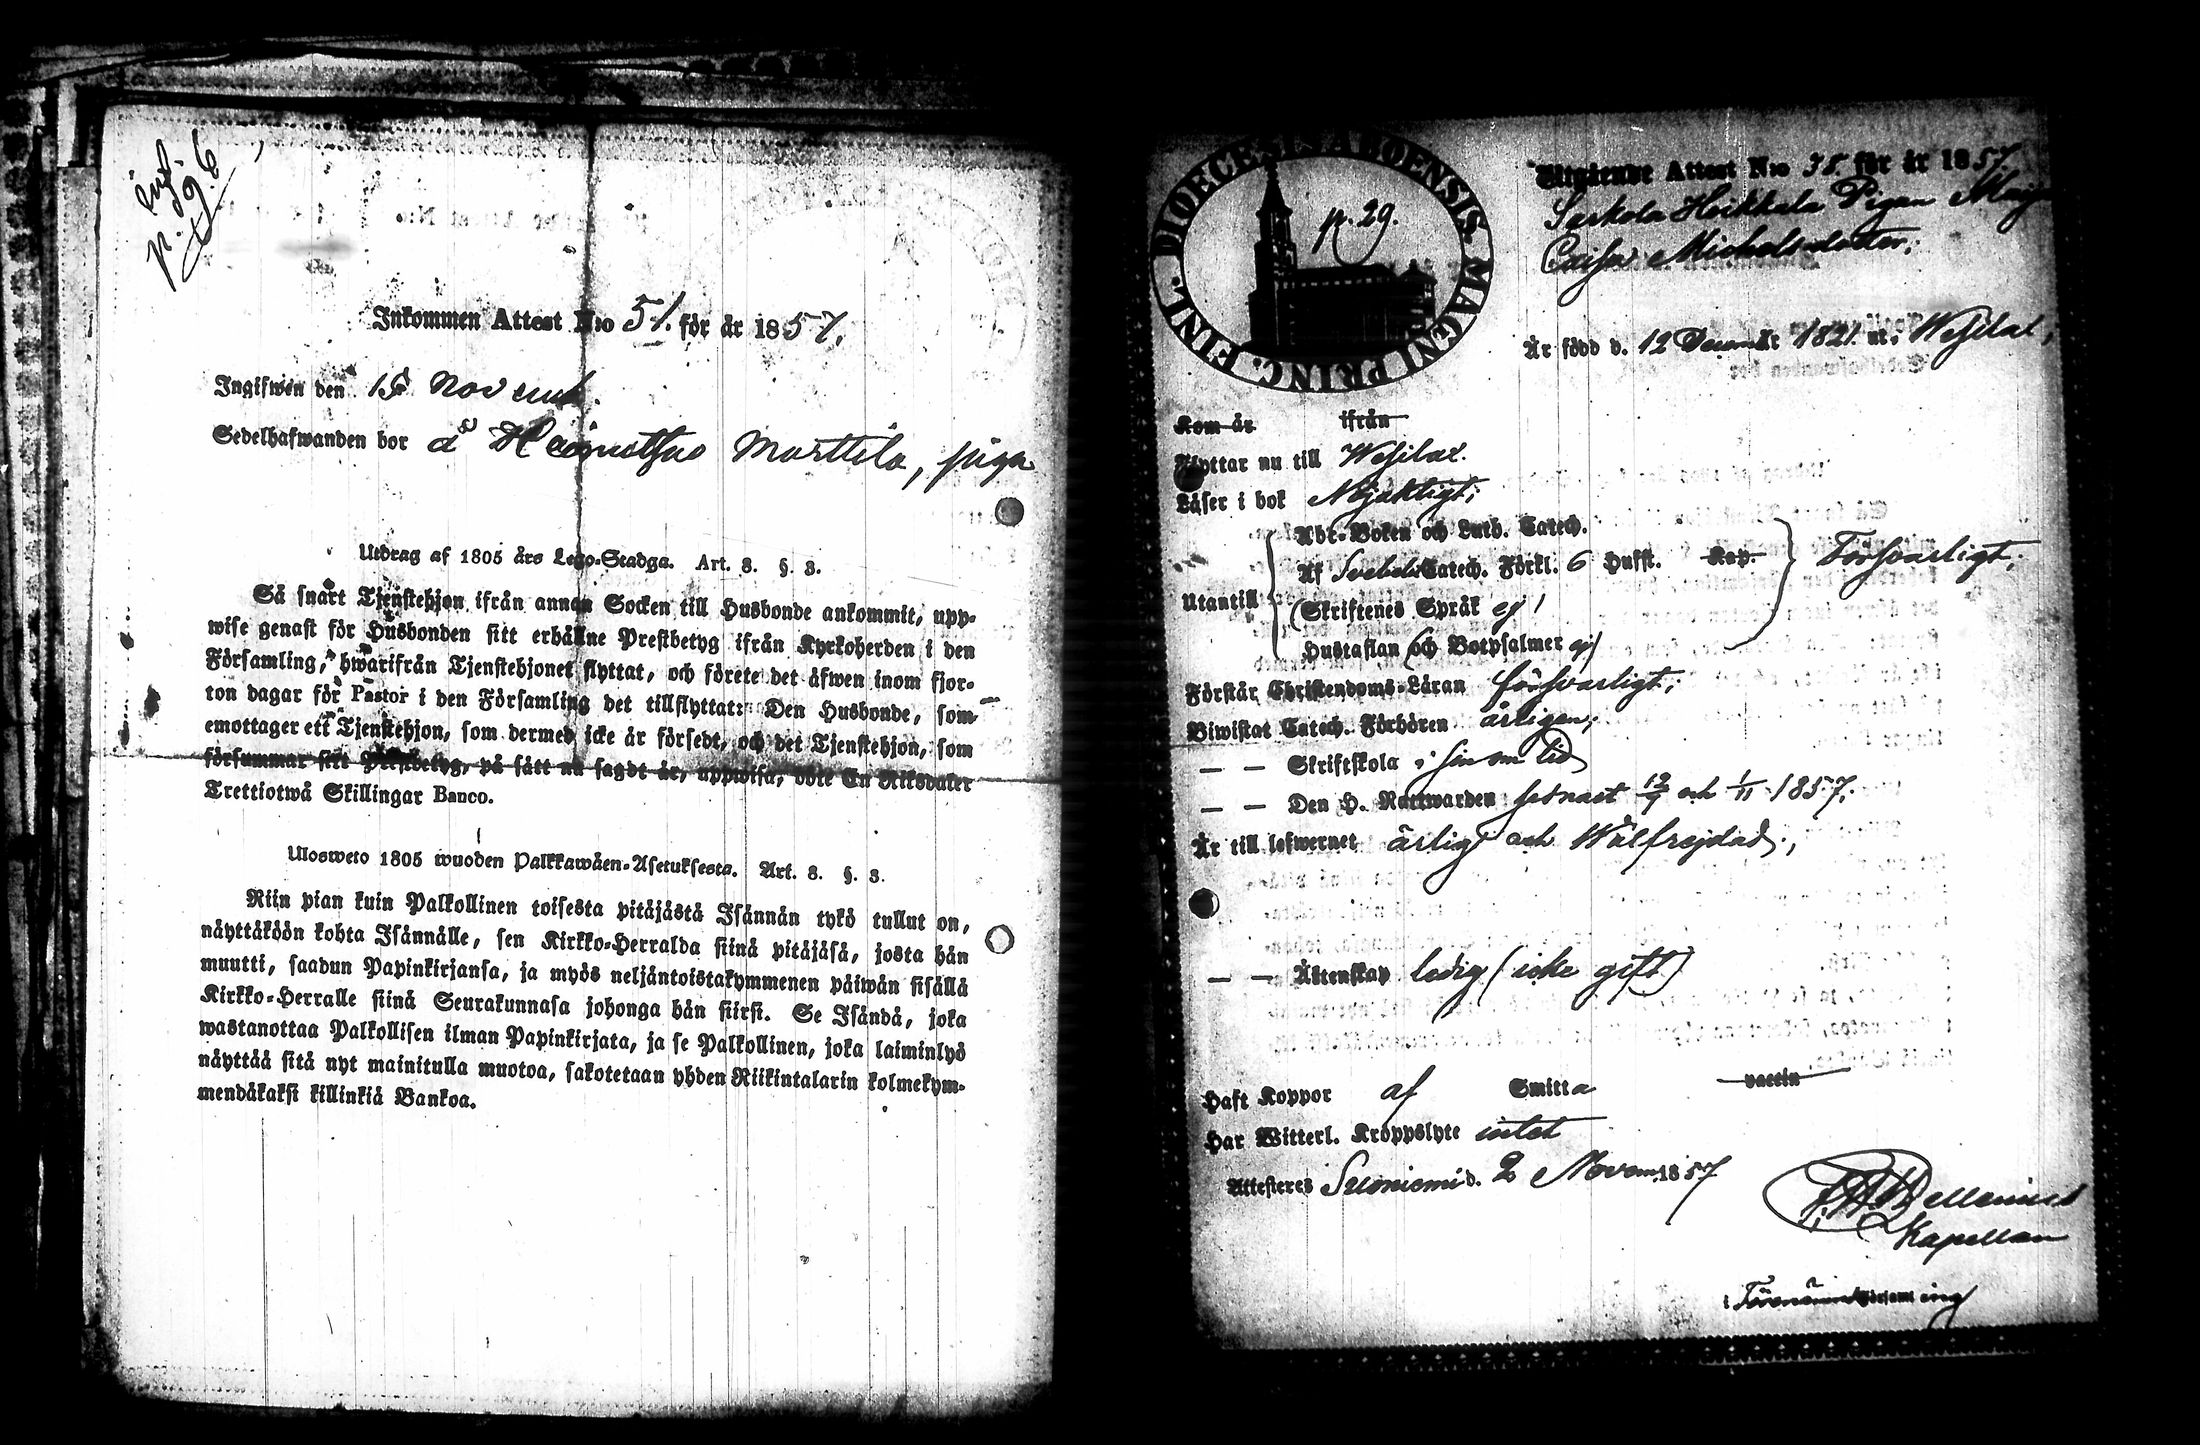 p. 29.6
Inkommen Attest N:o 51. för år 1857.
Ingifwen den 15 Novemb.
Sedelhafwanden bor å Marttila, piga
Utdrag af 1805 års Lego-Stadga. Art. 8. §. 3.
Så snart Tjenstehjon ifrån annan Socken till Husbonde ankommit, upp-
wise genast för Husbonden sitt erhållne Prestbetyg ifrån Kyrkoherden i den
Församling, hwarifrån Tjenstehjonet flyttat, och förete det äfwen inom fjor-
ton dagar för Pastor i den Församling det tillflyttat: Den Husbonde, som
emottager ett Tjenstehjon, som dermed icke är försedt, och det Tjenstehjon, som
försummar sitt Prestbetyg, på sätt nu sagdt är, uppwisa, böte En Riksdaler
Trettiotwå Skillingar Banco.
Ulosweto 1805 wuoden Palkkawäen-Asetuksesta. Art. 8. §. 3.
Niin pian kuin Palkollinen toisesta pitäjästä Isännän tykö tullut on,
näyttäköön kohta Isännälle, sen Kirkko-Herralda siinä pitäjäsä, josta hän
muutti, saadun Papinkirjansa, ja myös neljäntoistakymmenen päiwän sisällä
Kirkko-Herralle siinä Seurakunnasa johonga hän siirsi. Se Isändä, joka
wastanottaa Palkollisen ilman Papinkirjata, ja se Palkollinen, joka laiminlyö
näyttää sitä nyt mainitulla muotoa, sakotetaan yhden Riikintalarin kolmekym-
mendäkaksi killinkiä Bankoa.
FINL. DIOECESIS ABOENSIS. MAGNI PRINC.
p. 29.
Utgående Attest N:o 35 för år 1857.
Sarkola Heikkala Pigan Maja
Caisa Michelsdotter;
Är född d. 12 Decem 1821. i Wesilax;
Kom år ifrån
Flyttar nu till Wesilax.
Läser i bok Nöjaktigt;
Utantill
Abc-Boken och Luth. Catech.
Af Svebeli Catech. Förkl. 6 Hufst. Kap.
Skriftenes Språk ej
Hustaflan och Botpsalmer ej
Försvarligt;
Förstår Christendoms-Läran försvarligt;
Biwistat Catech. Förhören årligen;
— — Skriftskola i sin tid
— — Den H. Nattwarden senast 12/7 och 1/11 1857;
Är till lefwernet ärlig och Wälfrejdad;
— — Äktenskap ledig (icke gift)
Haft Koppor af Smitta vaccin
Har Witterl. Kroppslyte intet
Attesteras Suoniemi d. 2 Novem. 1857
Kapellan
i församling